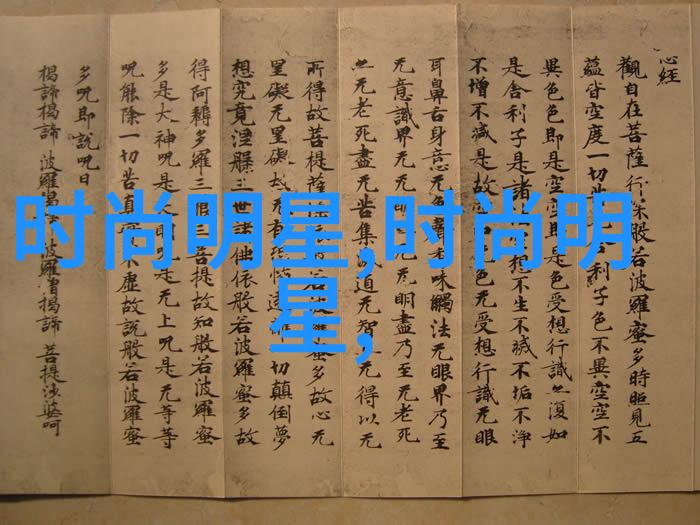 心经
觀自在菩薩行深般若波羅蜜多時照見五
蘊皆空度一切苦利子色不異空空不
異色色即是空空即是色受想行識亦復如
是舍利子是諸相不生不滅不垢不淨
不增不减是故空色无受想行識无眼
耳鼻舌身意无色聲味觸法无眼界乃至
无意識界无无明无明盡乃至无老死
亦无老死盡无苦集滅道无智无得以无
所得故菩提薩若波羅蜜多故心无
罣礙无罣礙故无有恐怖遠離一切顛倒夢
想究竟涅槃三世諸佛依般若波羅蜜多故
得阿耨多羅三藐三菩提故知般若波羅蜜
多是大神呪是明呪是无上呪是无等等
呪能除一切苦真不虛故說般若波羅蜜
多呪即說呪曰
揭諦揭諦 波羅揭諦 波羅僧揭諦 菩提莎婆呵
时尚明星,时尚明
星,